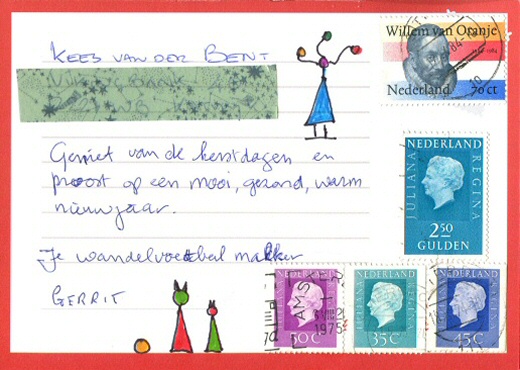 KEES VAN DER BENT
Geniet van de kerstdagen en
proost op een mooi, gezond, warm
nieuwjaar.
Je wandelvoetbal makker
GERRIT
Willem van Oranje
1584-1984
Nederland 70 ct
NEDERLAND
JULIANA REGINA
2 50
GULDEN
NEDERLAND
50C
NEDERLAND
JULIANA REGINA
35C
NEDERLAND
JULIANA REGINA
45C
AMST
1975